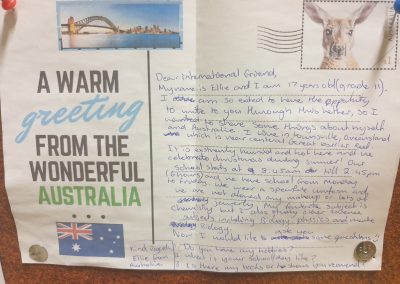 A WARM
greeting
FROM THE
WONDERFUL
AUSTRALIA
Kind Regards,
Ellie from
Australia
Dear International Friend,
My name is Ellie and I am 17 years old (grade 11).
I am so excited to have the opportunity
to write to you through this letter, so I
wanted to share some things about myself
and Australia. I live in Townsville, Queensland
which is near central Great barrier Reef.
It is extremely humid and hot here and we
celebrate christmas during summer! Our
School starts at 8:45am till 2:45pm
(6hours) and we have school from monday
to friday. We wear a specific uniform and
we are not allowed any makeup or lots of
jewerly. My favourite subject is
Chemistry but I also study other science
subjects including Biology, physics and maths
Now I would like to ask you some questions!
1. Do you have any hobbies?
2. What is your schooling like?
3. Is there any books or tv shows you recommend?